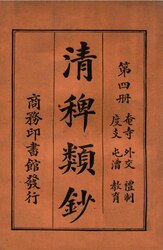 第四冊
外交 禮制 教育
度支 屯漕
清稗類鈔
商務印書館發行